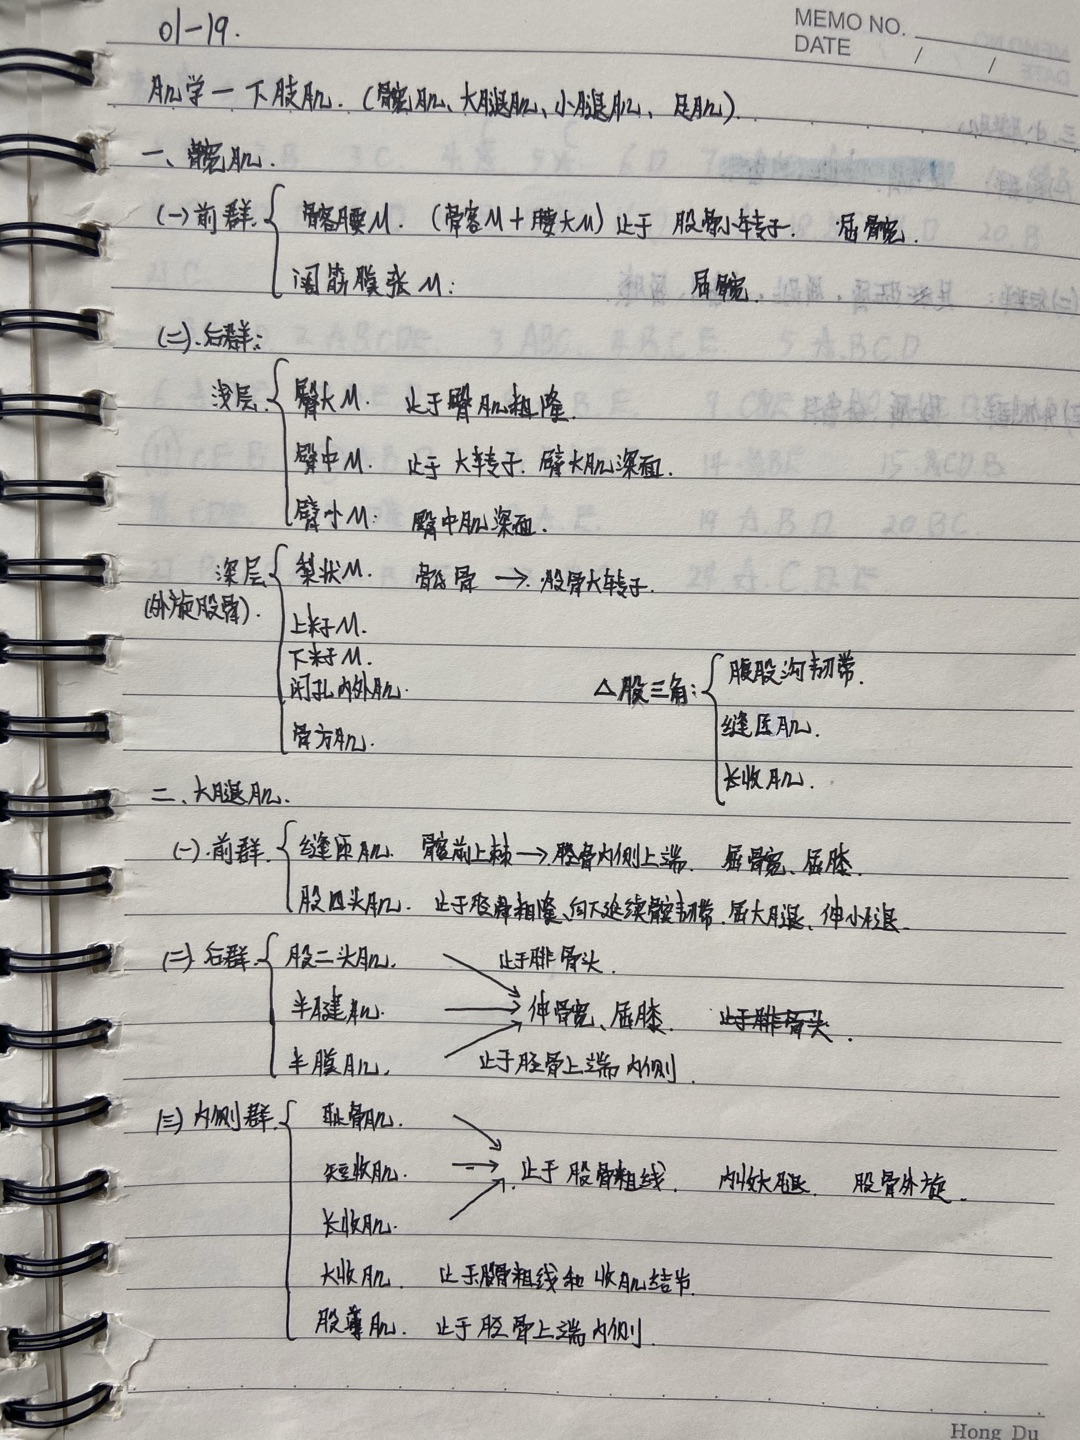 01-19.
MEMO NO.
DATE / /
肌学一下肢肌.(髋肌、大腿肌、小腿肌、足肌)
一、髋肌.
(一)前群. 髂腰M. (髂M+腰大M)止于 股骨小转子. 屈髋.
阔筋膜张M: 屈髋
(二).后群:
浅层. 臀大M. 止于臀肌粗隆.
臀中M. 止于大转子. 臀大肌深面.
臀小M: 臀中肌深面.
深层 梨状M. 骶骨→.股骨大转子.
(外旋股骨). 上孖M.
下孖M.
闭孔内外肌.
△股三角: 腹股沟韧带.
缝匠肌.
骨方肌.
长收肌.
二、大腿肌.
(一).前群. 缝匠肌. 髂前上棘→.胫骨内侧上端. 屈髋、屈膝.
股四头肌. 止于胫骨粗隆、向下延续髌韧带. 屈大腿、伸小腿.
(二)后群. 股二头肌. 止于腓骨头.
半腱肌. 伸髋、屈膝. 止于腓骨头.
半膜肌. 止于胫骨上端内侧.
(三)内侧群. 耻骨肌.
短收肌. 止于股骨粗线. 内收大腿. 股骨外旋.
长收肌.
大收肌. 止于股骨粗线和收肌结节.
股薄肌. 止于胫骨上端内侧.
Hong Du